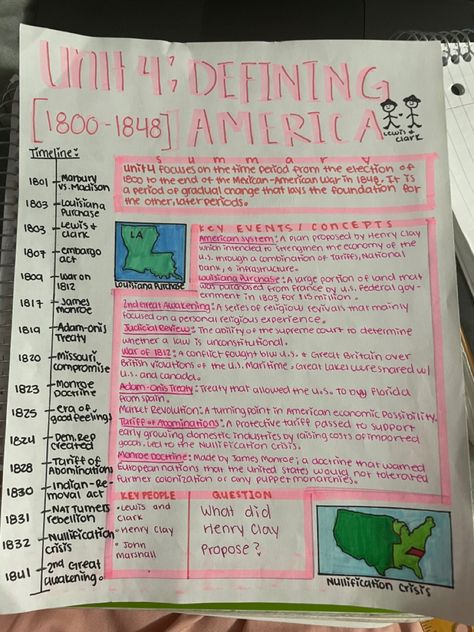 Unit 4: DEFINING
[1800-1848] AMERICA
Lewis &
Clark
Timeline:
1801 Marbury
vs. Madison
1803 Louisiana
Purchase
1803 Lewis &
Clark
1807 embargo
act
1809 war on
1812
1817 James
monroe
1819 Adam-onis
Treaty
1820 missouri
compromise
1823 monroe
Doctrine
1825 era of
good feelings
1824 Dem. Rep
created
1828 Tariff of
Abominations
1830 Indian-Re-
moval act
1831 NAT turners
rebellion
1832 Nullification
crisis
1841 2nd Great
awakening
summary
Unit 4 focuses on the time period from the election of
1800 to the end of the Mexican-American war in 1848. It is
a period of gradual change that lays the foundation for
the other, later periods.
LA
Louisiana Purchase
KEY EVENTS / CONCEPTS
American System: A plan proposed by Henry Clay
which intended to strengthen the economy of the
U.S. through a combination of Tariffs, National
bank, & infrastructure.
Louisiana Purchase: A large portion of land that
was purchased from France by U.S. federal gov-
ernment in 1803 for $15 million.
2nd Great Awakening: A series of religious revivals that mainly
focused on a personal religious experience.
Judicial Review: The ability of the supreme court to determine
whether a law is unconstitutional.
War of 1812: A conflict fought b/w U.S. & Great Britain over
British violations of the U.S. Maritime, Great Lakes were shared w/
U.S. and Canada.
Adam-Onis Treaty: Treaty that allowed the U.S. to buy Florida
from Spain.
Market Revolution: A turning point in American economic possibility.
Tariff of Abominations: A protective tariff passed to support
early growing domestic industries by raising costs of imported
goods. Led to the Nullification Crisis.
Monroe Doctrine: Made by James Monroe; a doctrine that warned
European nations that the United States would not tolerated
further colonization or any puppet monarchies.
KEY PEOPLE
• Lewis and
Clark
• Henry Clay
• John
Marshall
QUESTION
What did
Henry Clay
Propose?
Nullification Crisis